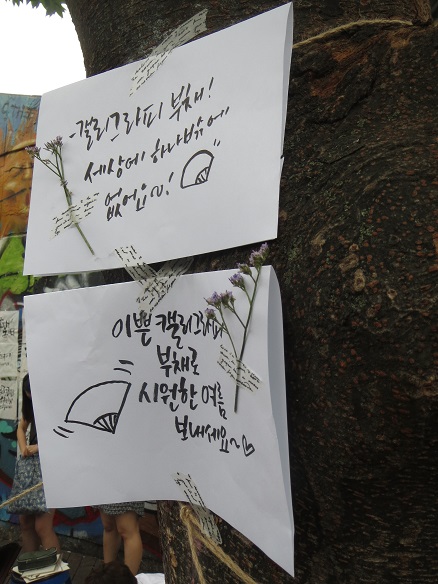 캘리그라피 부채!
세상에 하나밖에
없어요~!
이쁜 캘리그라피
부채로
시원한 여름
보내세요~♡